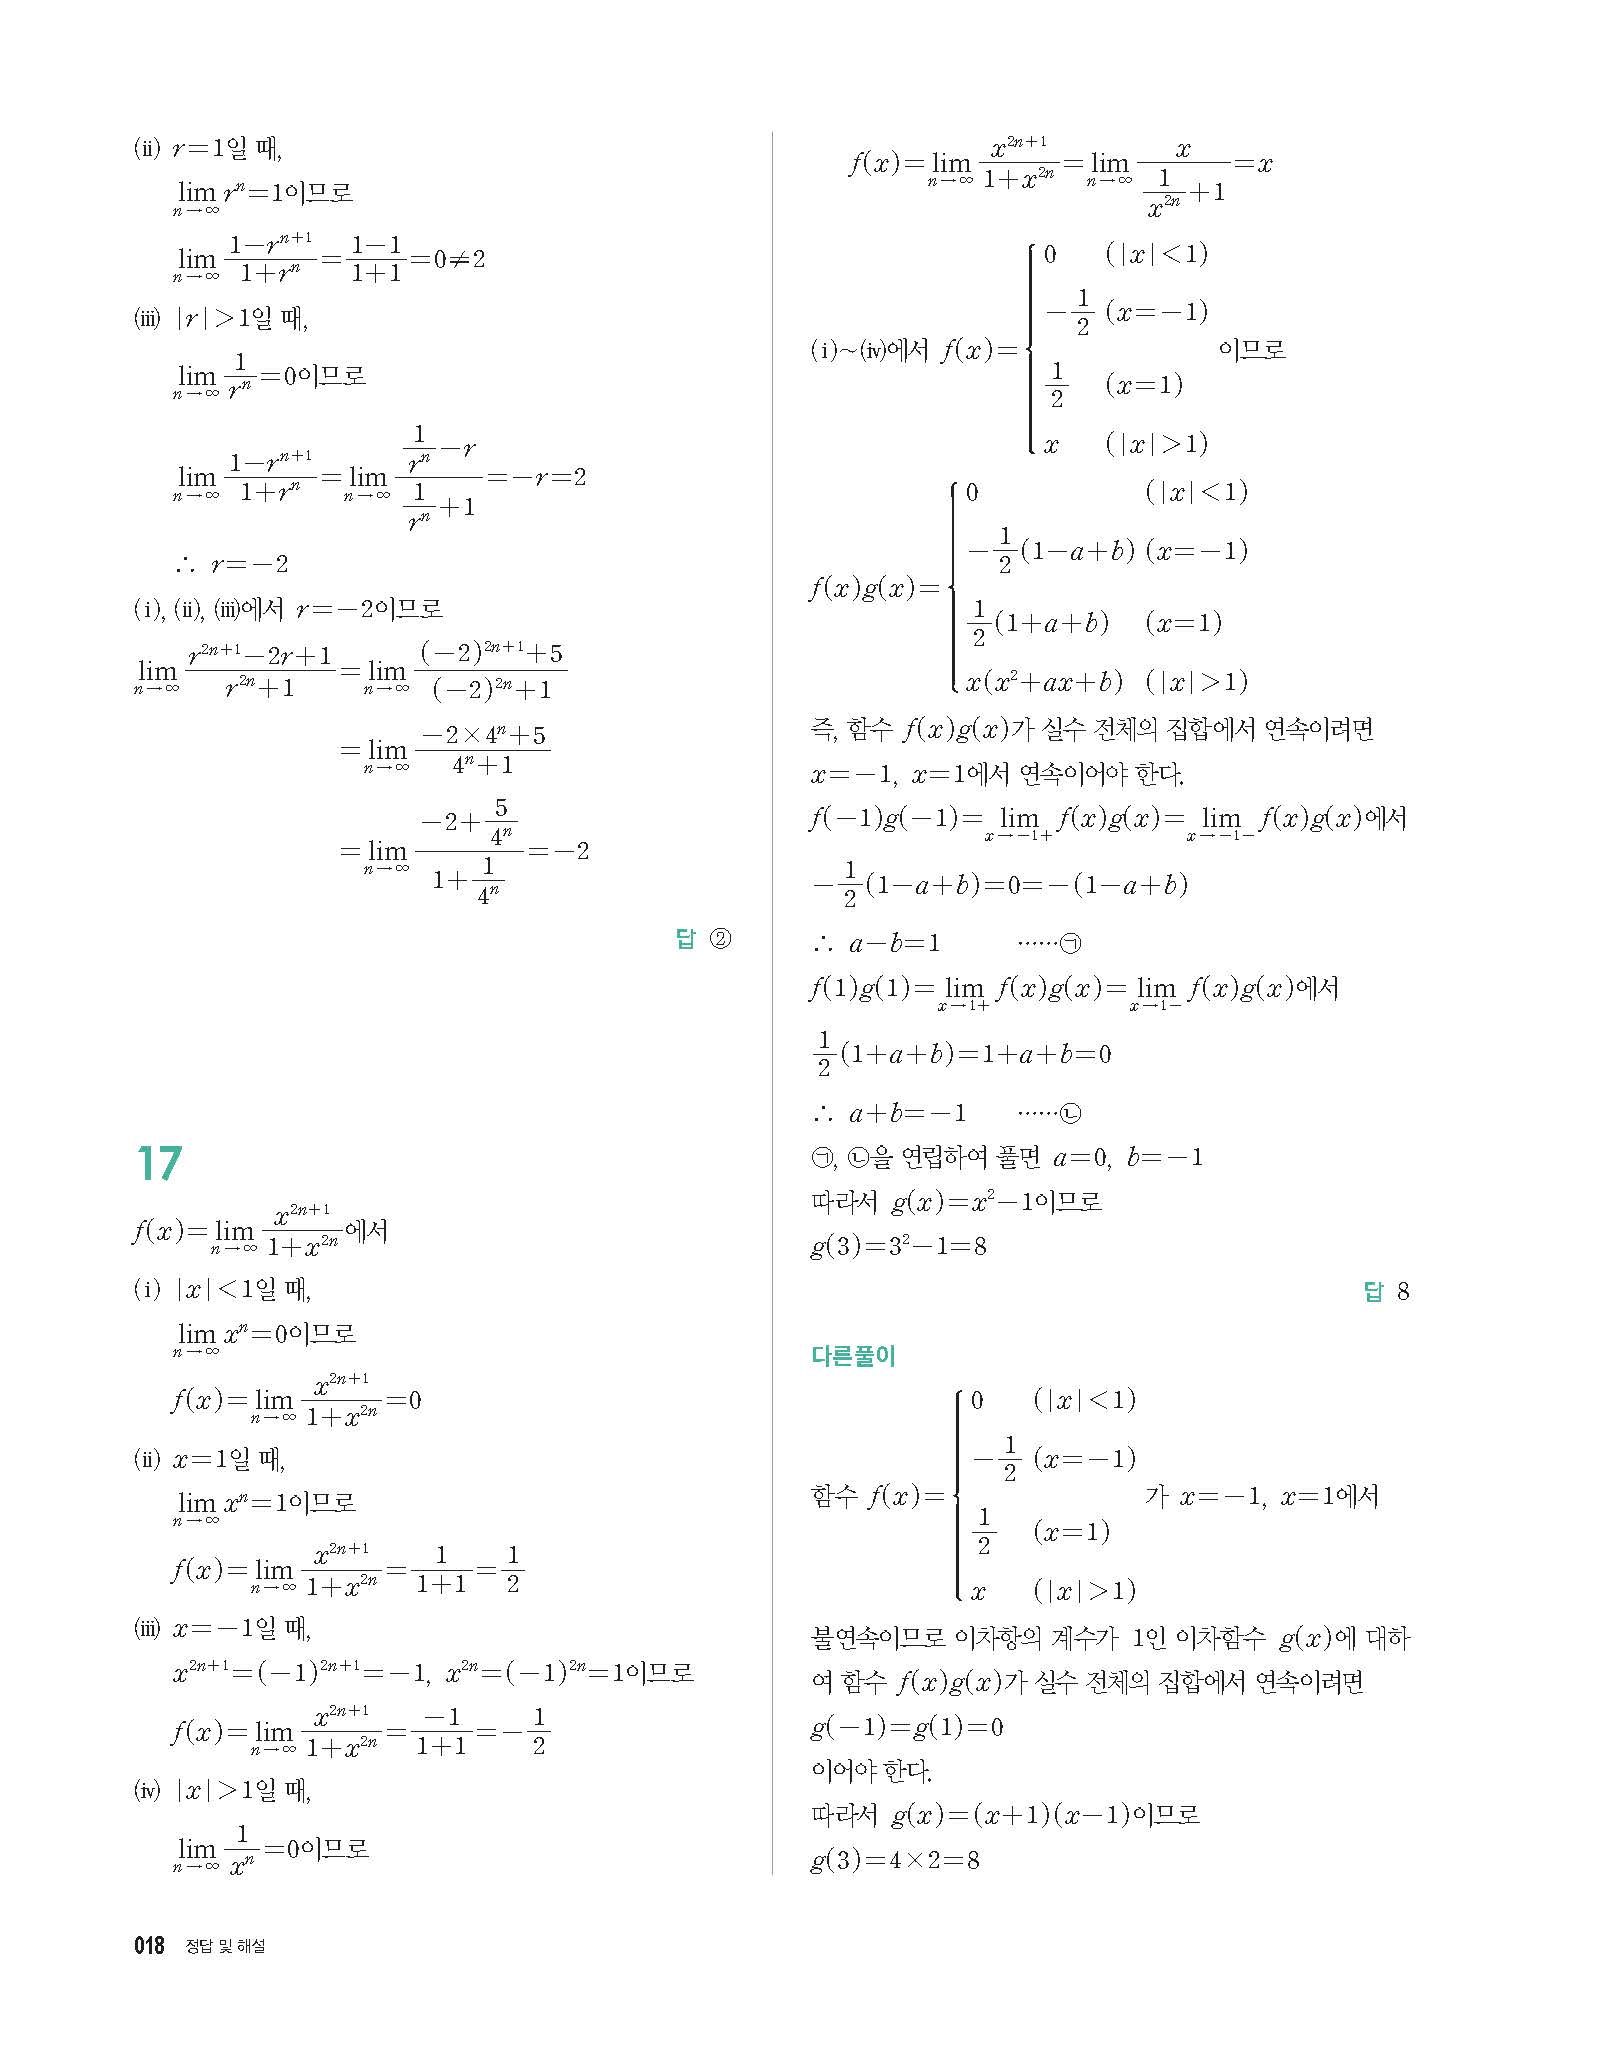 (ⅱ) r=1일 때,
lim_{n→∞} rⁿ=1이므로
lim_{n→∞} (1-r^{n+1})/(1+rⁿ)=(1-1)/(1+1)=0≠2
(ⅲ) |r|>1일 때,
lim_{n→∞} 1/rⁿ=0이므로
lim_{n→∞} (1-r^{n+1})/(1+rⁿ)=lim_{n→∞} (1/rⁿ-r)/(1/rⁿ+1)=-r=2
∴ r=-2
(ⅰ), (ⅱ), (ⅲ)에서 r=-2이므로
lim_{n→∞} (r^{2n+1}-2r+1)/(r^{2n}+1)=lim_{n→∞} ((-2)^{2n+1}+5)/((-2)^{2n}+1)
=lim_{n→∞} (-2×4ⁿ+5)/(4ⁿ+1)
=lim_{n→∞} (-2+5/4ⁿ)/(1+1/4ⁿ)=-2
답 ②
17
f(x)=lim_{n→∞} x^{2n+1}/(1+x^{2n})에서
(ⅰ) |x|<1일 때,
lim_{n→∞} xⁿ=0이므로
f(x)=lim_{n→∞} x^{2n+1}/(1+x^{2n})=0
(ⅱ) x=1일 때,
lim_{n→∞} xⁿ=1이므로
f(x)=lim_{n→∞} x^{2n+1}/(1+x^{2n})=1/(1+1)=1/2
(ⅲ) x=-1일 때,
x^{2n+1}=(-1)^{2n+1}=-1, x^{2n}=(-1)^{2n}=1이므로
f(x)=lim_{n→∞} x^{2n+1}/(1+x^{2n})=-1/(1+1)=-1/2
(ⅳ) |x|>1일 때,
lim_{n→∞} 1/xⁿ=0이므로
f(x)=lim_{n→∞} x^{2n+1}/(1+x^{2n})=lim_{n→∞} x/(1/x^{2n}+1)=x
(ⅰ)~(ⅳ)에서 f(x)={ 이므로
0 (|x|<1)
-1/2 (x=-1)
1/2 (x=1)
x (|x|>1)
f(x)g(x)={
0 (|x|<1)
-1/2(1-a+b) (x=-1)
1/2(1+a+b) (x=1)
x(x²+ax+b) (|x|>1)
즉, 함수 f(x)g(x)가 실수 전체의 집합에서 연속이려면
x=-1, x=1에서 연속이어야 한다.
f(-1)g(-1)=lim_{x→-1+} f(x)g(x)=lim_{x→-1-} f(x)g(x)에서
-1/2(1-a+b)=0=-(1-a+b)
∴ a-b=1 ……㉠
f(1)g(1)=lim_{x→1+} f(x)g(x)=lim_{x→1-} f(x)g(x)에서
1/2(1+a+b)=1+a+b=0
∴ a+b=-1 ……㉡
㉠, ㉡을 연립하여 풀면 a=0, b=-1
따라서 g(x)=x²-1이므로
g(3)=3²-1=8
답 8
다른풀이
함수 f(x)={ 가 x=-1, x=1에서
0 (|x|<1)
-1/2 (x=-1)
1/2 (x=1)
x (|x|>1)
불연속이므로 이차항의 계수가 1인 이차함수 g(x)에 대하
여 함수 f(x)g(x)가 실수 전체의 집합에서 연속이려면
g(-1)=g(1)=0
이어야 한다.
따라서 g(x)=(x+1)(x-1)이므로
g(3)=4×2=8
018 정답 및 해설